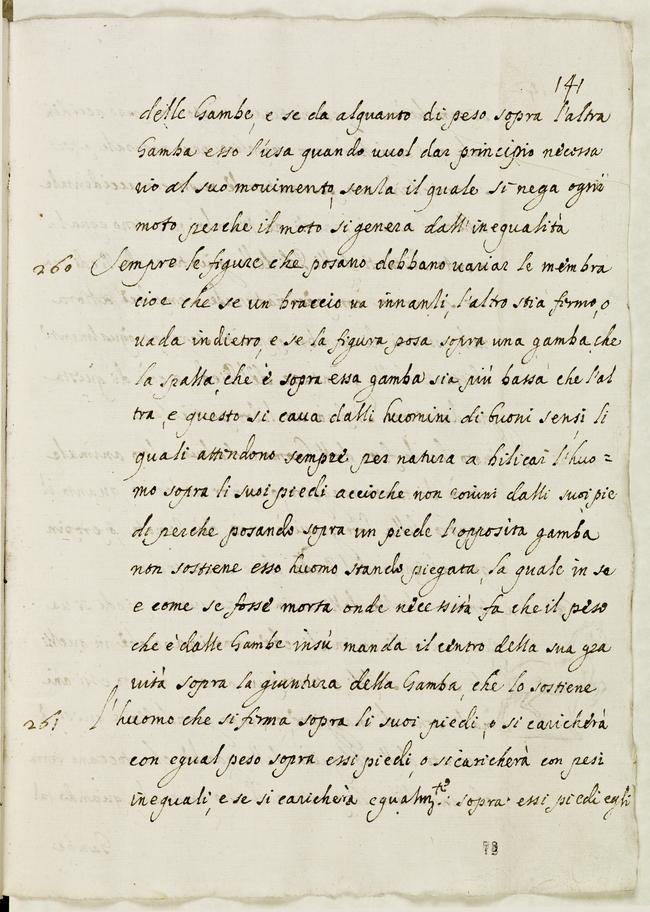 141
delle Gambe, e se da alquanto di peso sopra l'altra
Gamba esso l'usa quando vuol dar principio necessa
rio al suo movimento, senza il quale si nega ogni
moto perche il moto si genera dall'inequalità
260 Sempre le figure che posano debbano variar le membra
cioe che se un braccio va innanzi, l'altro stia fermo, o
vada indietro, e se la figura posa sopra una gamba che
la spalla, che è sopra essa gamba sia più bassa che l'al
tra, e questo si cava dalli huomini di buoni sensi li
quali attendono sempre per natura a bilicar l'huo=
mo sopra li suoi piedi accioche non rovini dalli suoi pie
di perche posando sopra un piede l'opposita gamba
non sostiene esso huomo stando piegata, la quale in se
e come se fosse morta onde necessità fa che il peso
che è dalle Gambe insù manda il centro della sua gra
vità sopra la giuntura della Gamba, che lo sostiene
261 l'huomo che si firma sopra li suoi piedi, o si caricherà
con equal peso sopra essi piedi, o si caricherà con pesi
inequali, e se si caricherà equalm.te sopra essi piedi egli
78